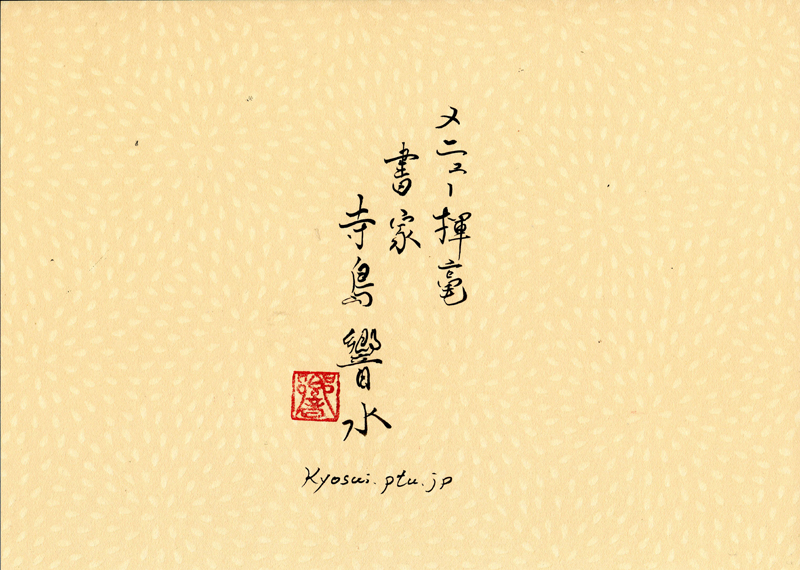 メニュー揮毫
書家
寺島響水
Kyosui.ptu.jp